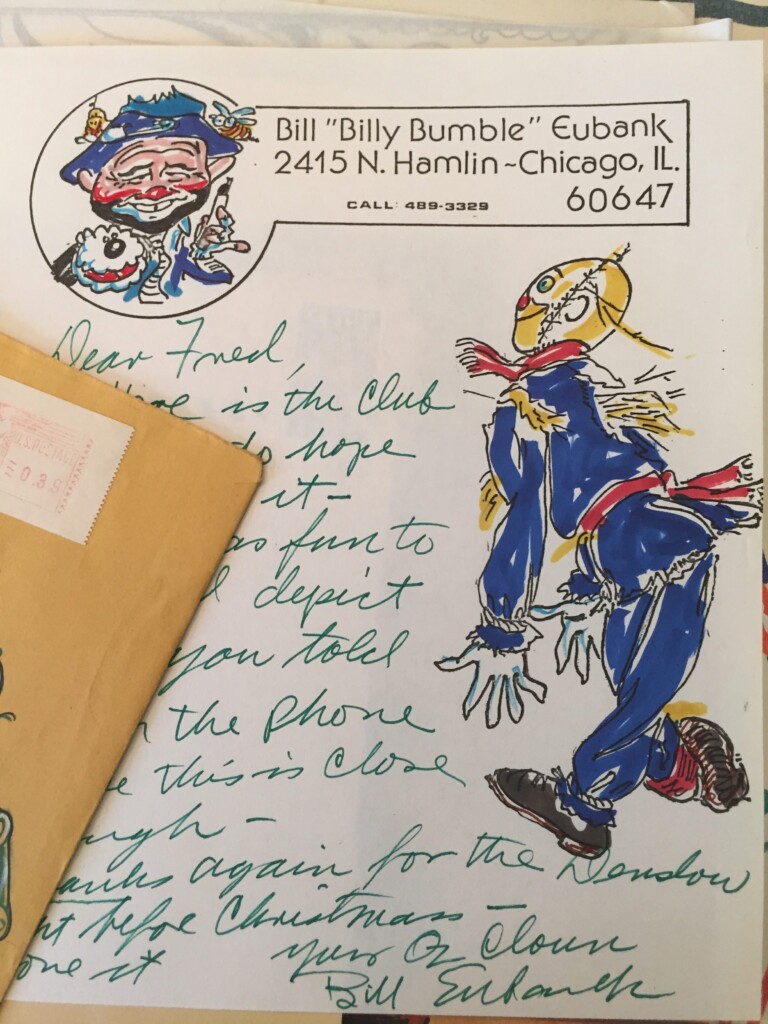 Bill "Billy Bumble" Eubank
2415 N. Hamlin~Chicago, IL.
CALL: 489-3329
60647
Dear Fred,
is the club
do hope
it-
as fun to
depict
you told
the phone
this is close
ugh-
anks again for the Denslow
ht befoe Christmas-
yur Oz Clown
one it
Bill Eubank
0.3